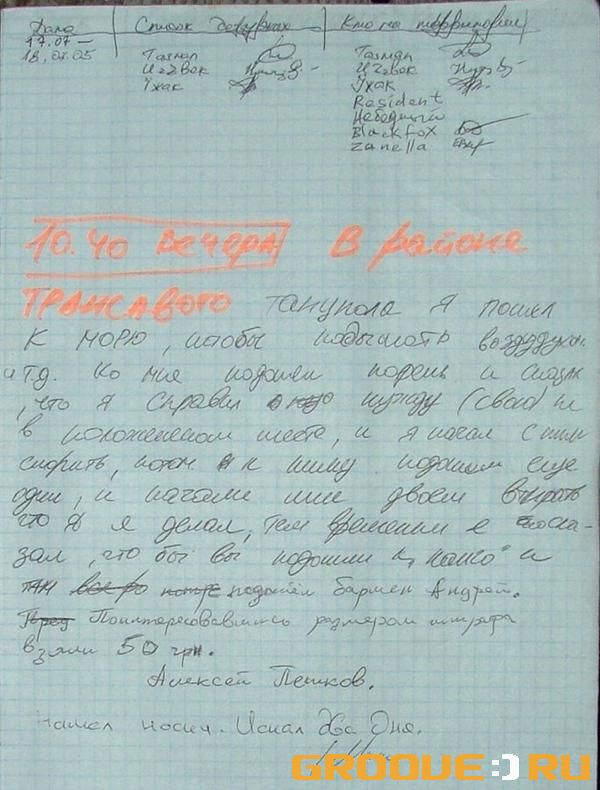 Дата Список дежурных Кто на территории
17.07 –
18.07.05 Тазман Тазман
Ихак Ихак
Resident
Blackfox
Zanella
10.40 вечера В районе
трансавого танцпола я пошел
к морю, чтобы подышать
и т.д. ко мне подошел парень и сказал
, что я справил нужду (свою) не
в положенном месте, и я начал с ним
спорить, потом к нему подошел еще
один, и начали мне двоем втирать
что я делал, тем временем я
зал, что бы вы подошли и
подошёл бармен Андрей.
Поинтересовавшись размером штрафа
взяли 50 грн.
Алексей Пешков.
Искал Два Дня.
GROOVE:)RU